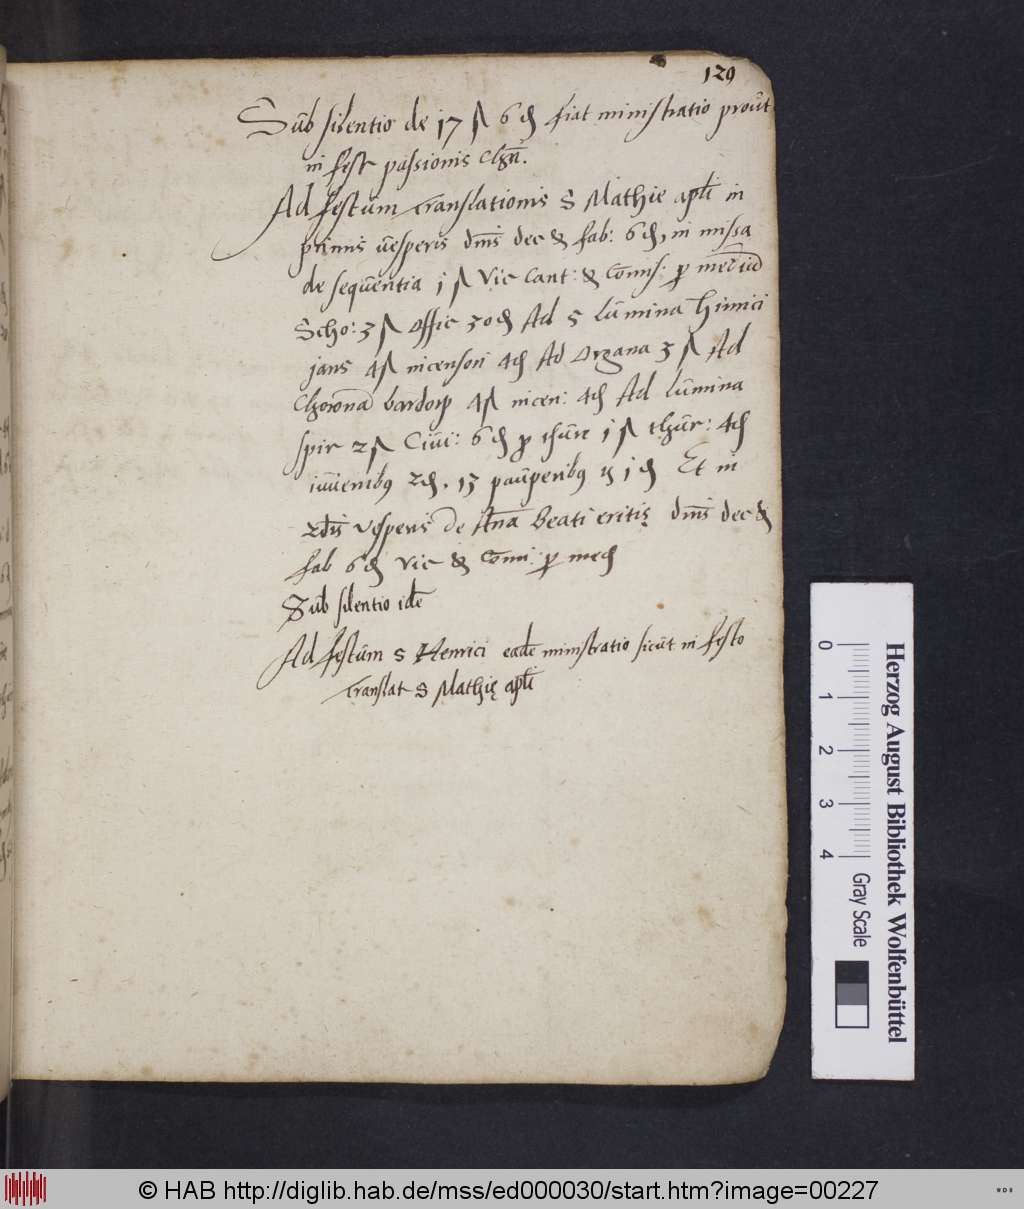 129
Sub silentio de 17 ß 6 ₰ fiat ministratio prout
in fest passionis Chri.
Ad festum translationis S Mathie apli in
primis vesperis dnis dec & fab: 6 ₰, in missa
de sequentia j ß Vic Cant: & Comis: p
Scho: 3 ß offic 30 ₰ Ad 5 lumina himici
jans 4 ß incensori 4 ₰ Ad Organa 3 ß Ad
Choronā bardorp 4 ß incen: 4 ₰ Ad lumina
spir 2 ß Civi: 6 ₰ p thure j ß thur: 4 ₰
iuvenibus 2 ₰. 13 pauperibus j ₰ Et in
2dis vesperis De Ana Beati eritis dnis dec &
fab 6 ₰ Vic & Comi: p
Sub silentio idē
Ad festum S Henrici eadē ministratio sicut in festo
translat S Mathię apli
Herzog August Bibliothek Wolfenbüttel
Gray Scale
0 1 2 3 4
© HAB http://diglib.hab.de/mss/ed000030/start.htm?image=00227